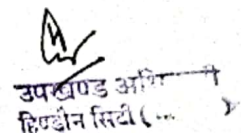 उपखण्ड अधि
हिण्डौन सिटी (